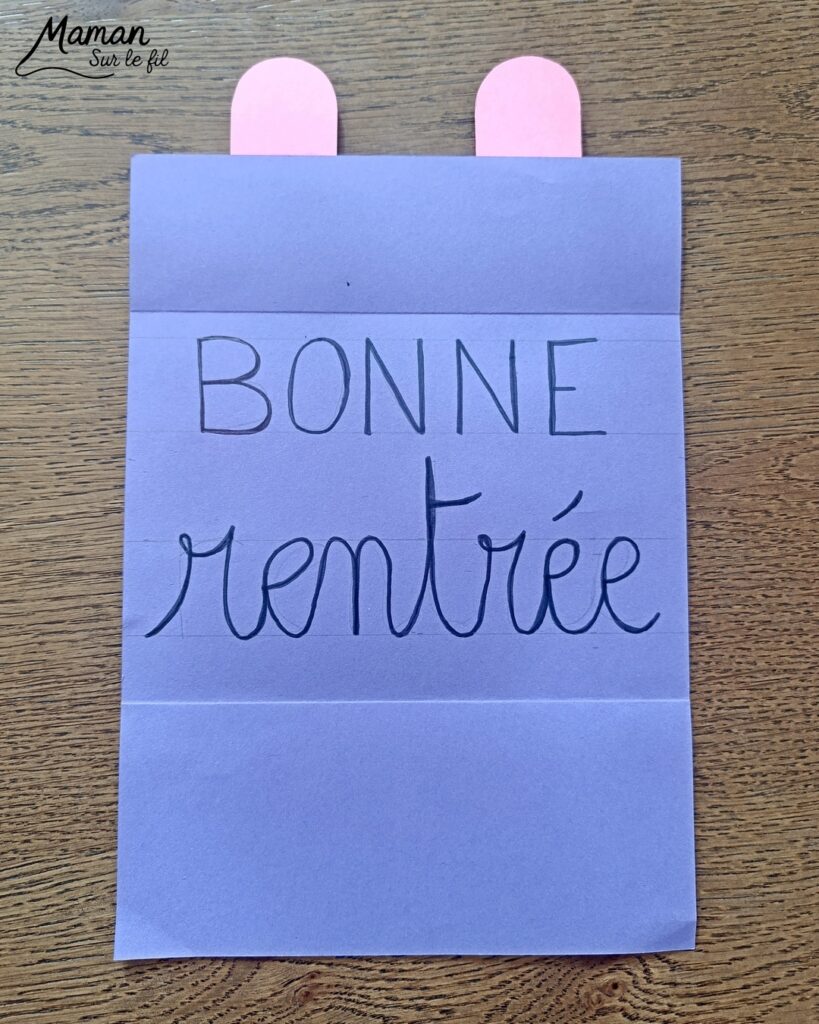 Maman
Sur le fil
BONNE
rentrée